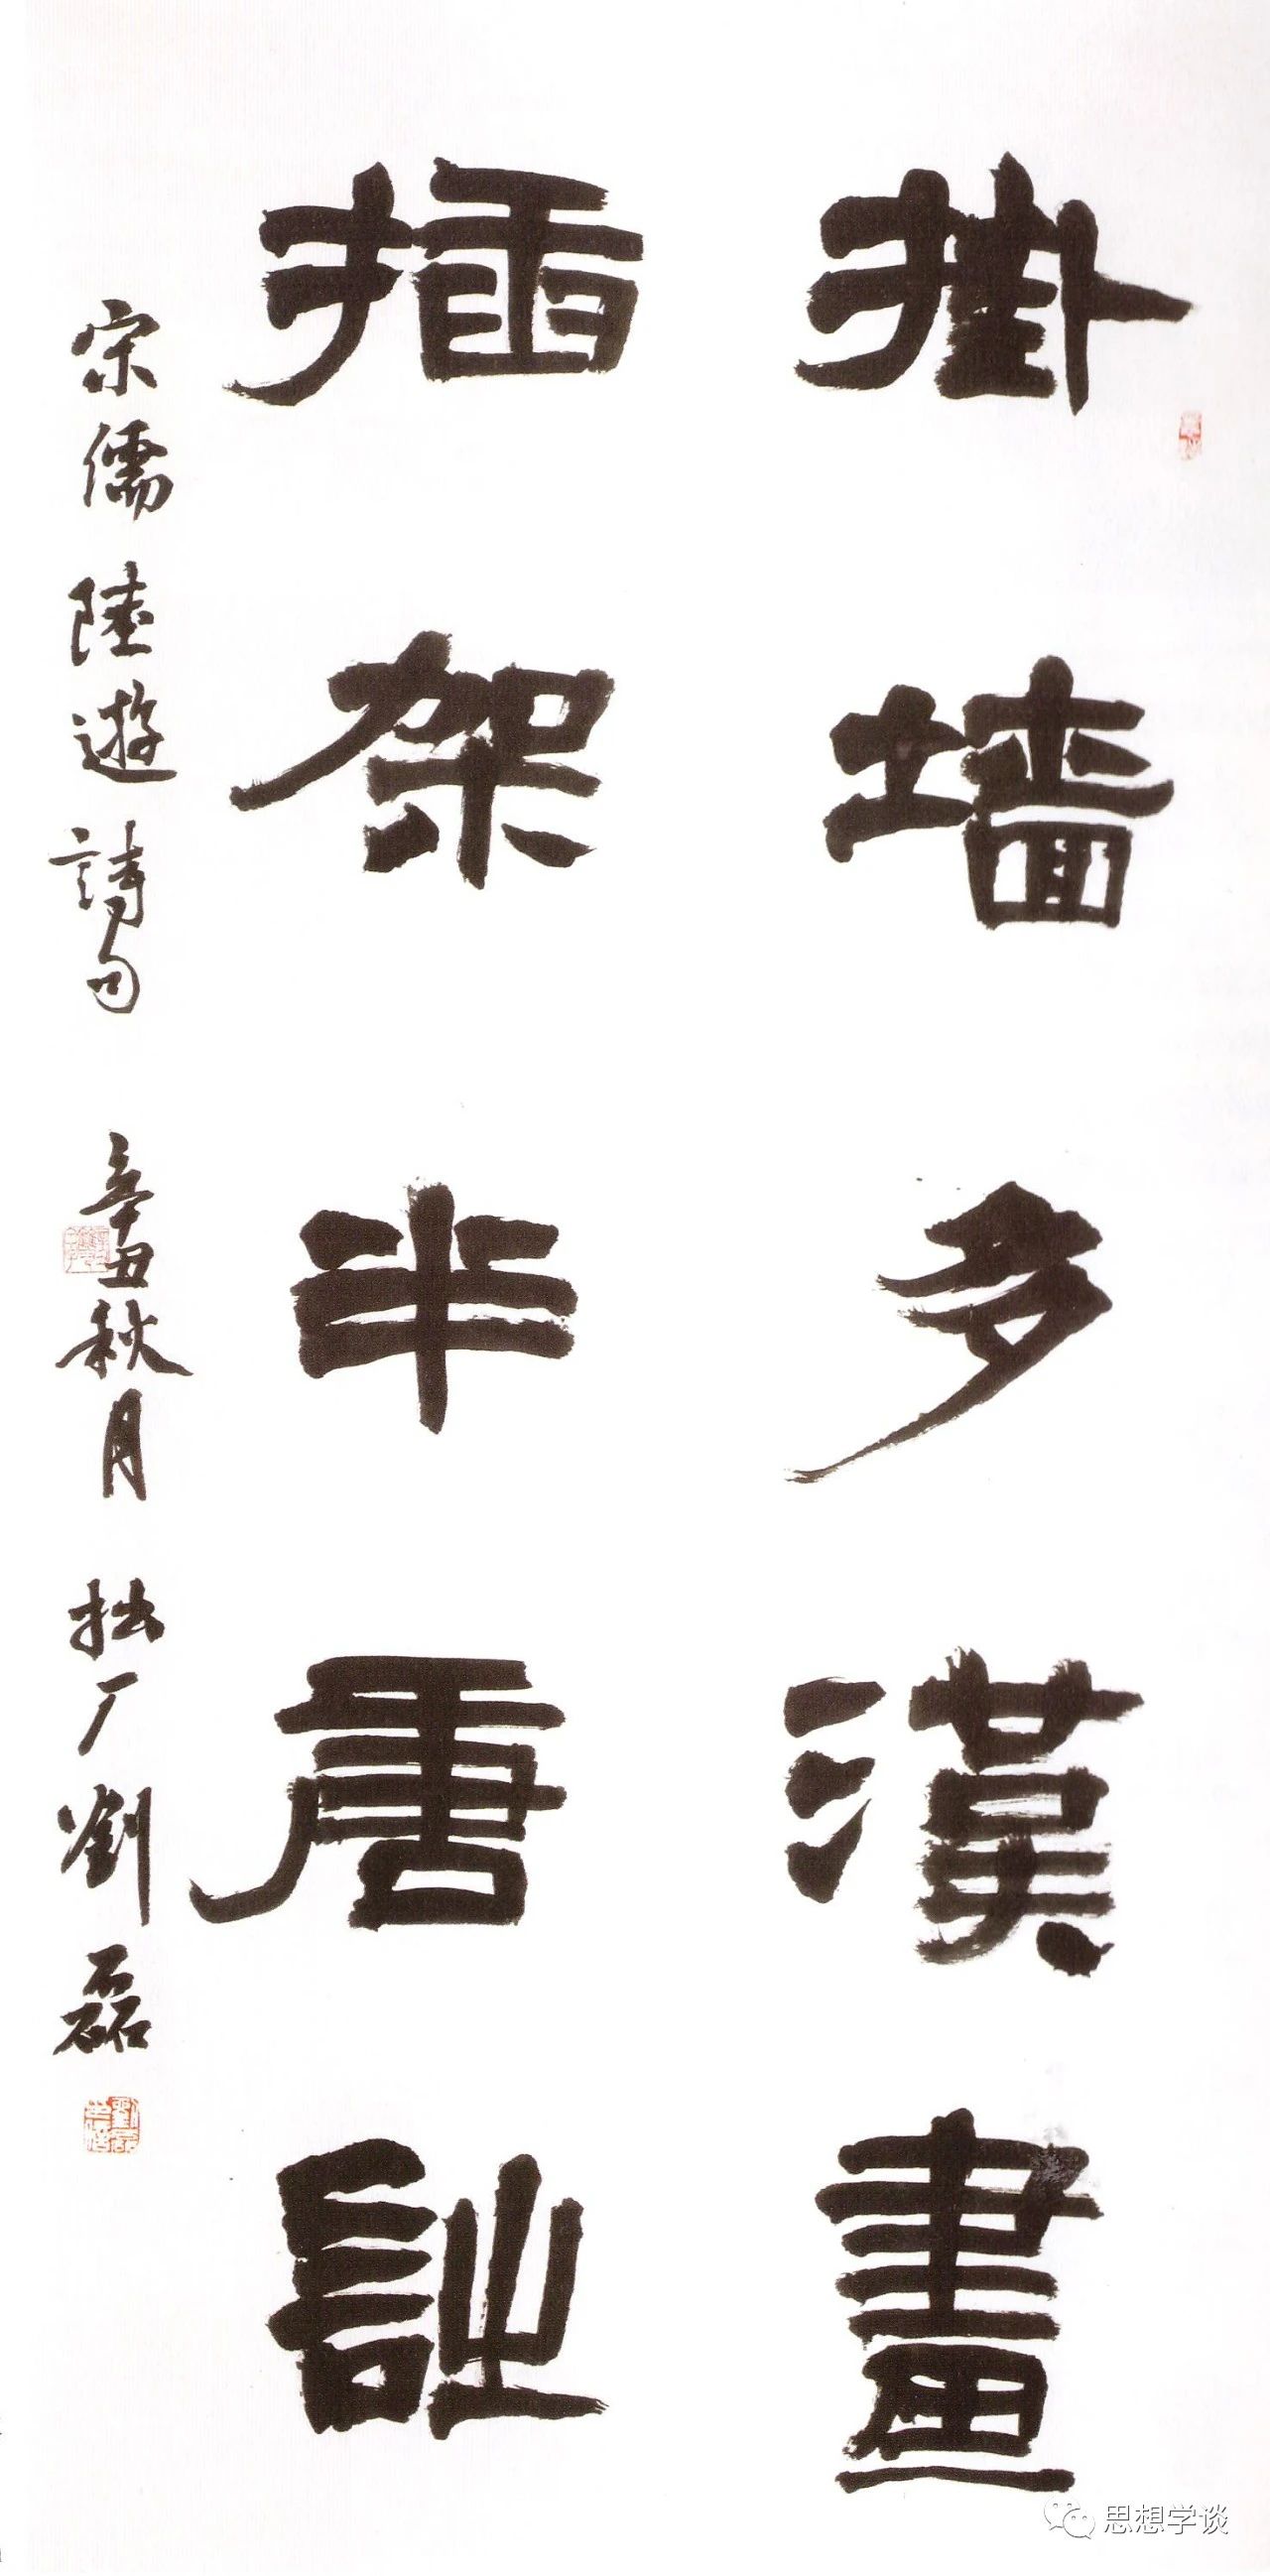 掛墙多漢畫
插架半唐詩
宋儒陸遊詩句 辛丑秋月 拙厂劉磊
思想学谈